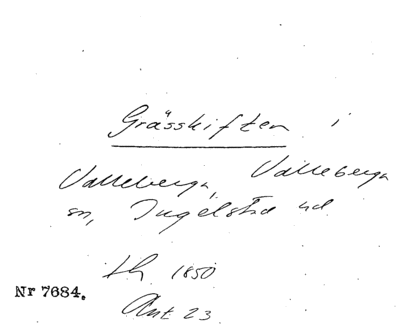 Grässkiften i
Valleberga, Valleberga
sn, Ingelstad hd
th 1850
Nr 7684.
Ant 23